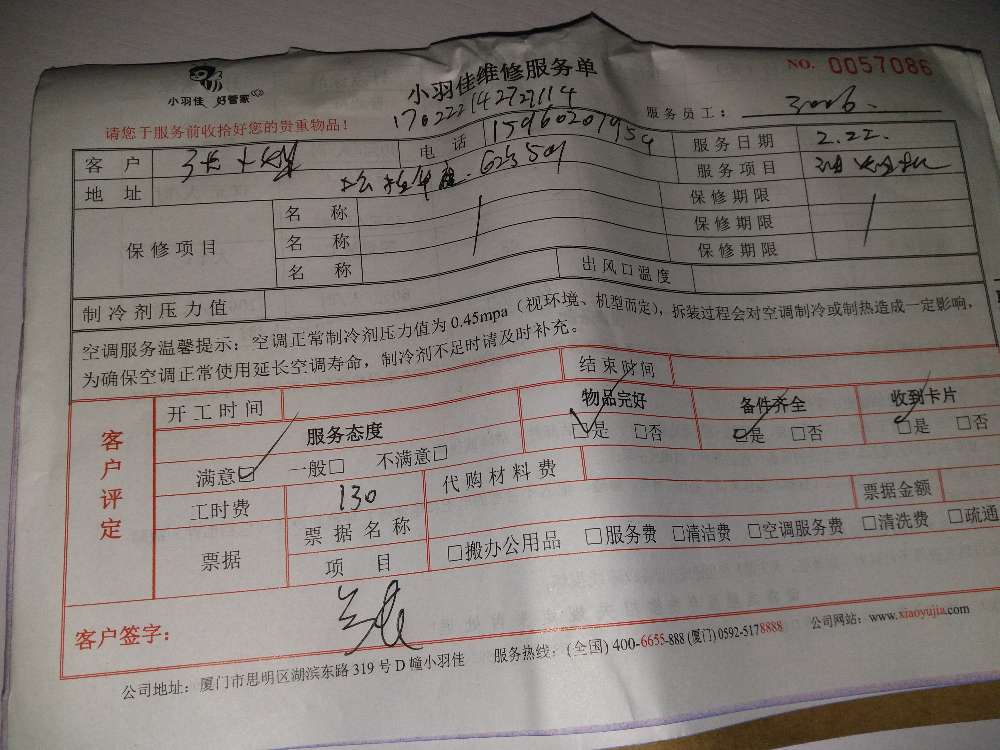 小羽佳 好管家
小羽佳维修服务单
NO. 0057086
请您于服务前收拾好您的贵重物品!
170222142727114
服务员工: 3006.
客户 电话 15960207959 服务日期 2.22.
地址 服务项目
保修项目 名称 保修期限
名称 保修期限
名称 保修期限
制冷剂压力值 出风口温度
空调服务温馨提示:空调正常制冷剂压力值为0.45mpa(视环境、机型而定),拆装过程会对空调制冷或制热造成一定影响,
为确保空调正常使用延长空调寿命,制冷剂不足时请及时补充。
客户评定 开工时间 结束时间
服务态度 物品完好 备件齐全 收到卡片
满意☑ 一般□ 不满意□ ☑是 □否 ☑是 □否 ☑是 □否
工时费 130 代购材料费
票据 票据名称 票据金额
项目 □搬办公用品 □服务费 □清洁费 □空调服务费 □清洗费 □疏通
客户签字:
公司地址:厦门市思明区湖滨东路319号D幢小羽佳 服务热线:(全国)400-6655-888 (厦门)0592-5178888 公司网站:www.xiaoyujia.com